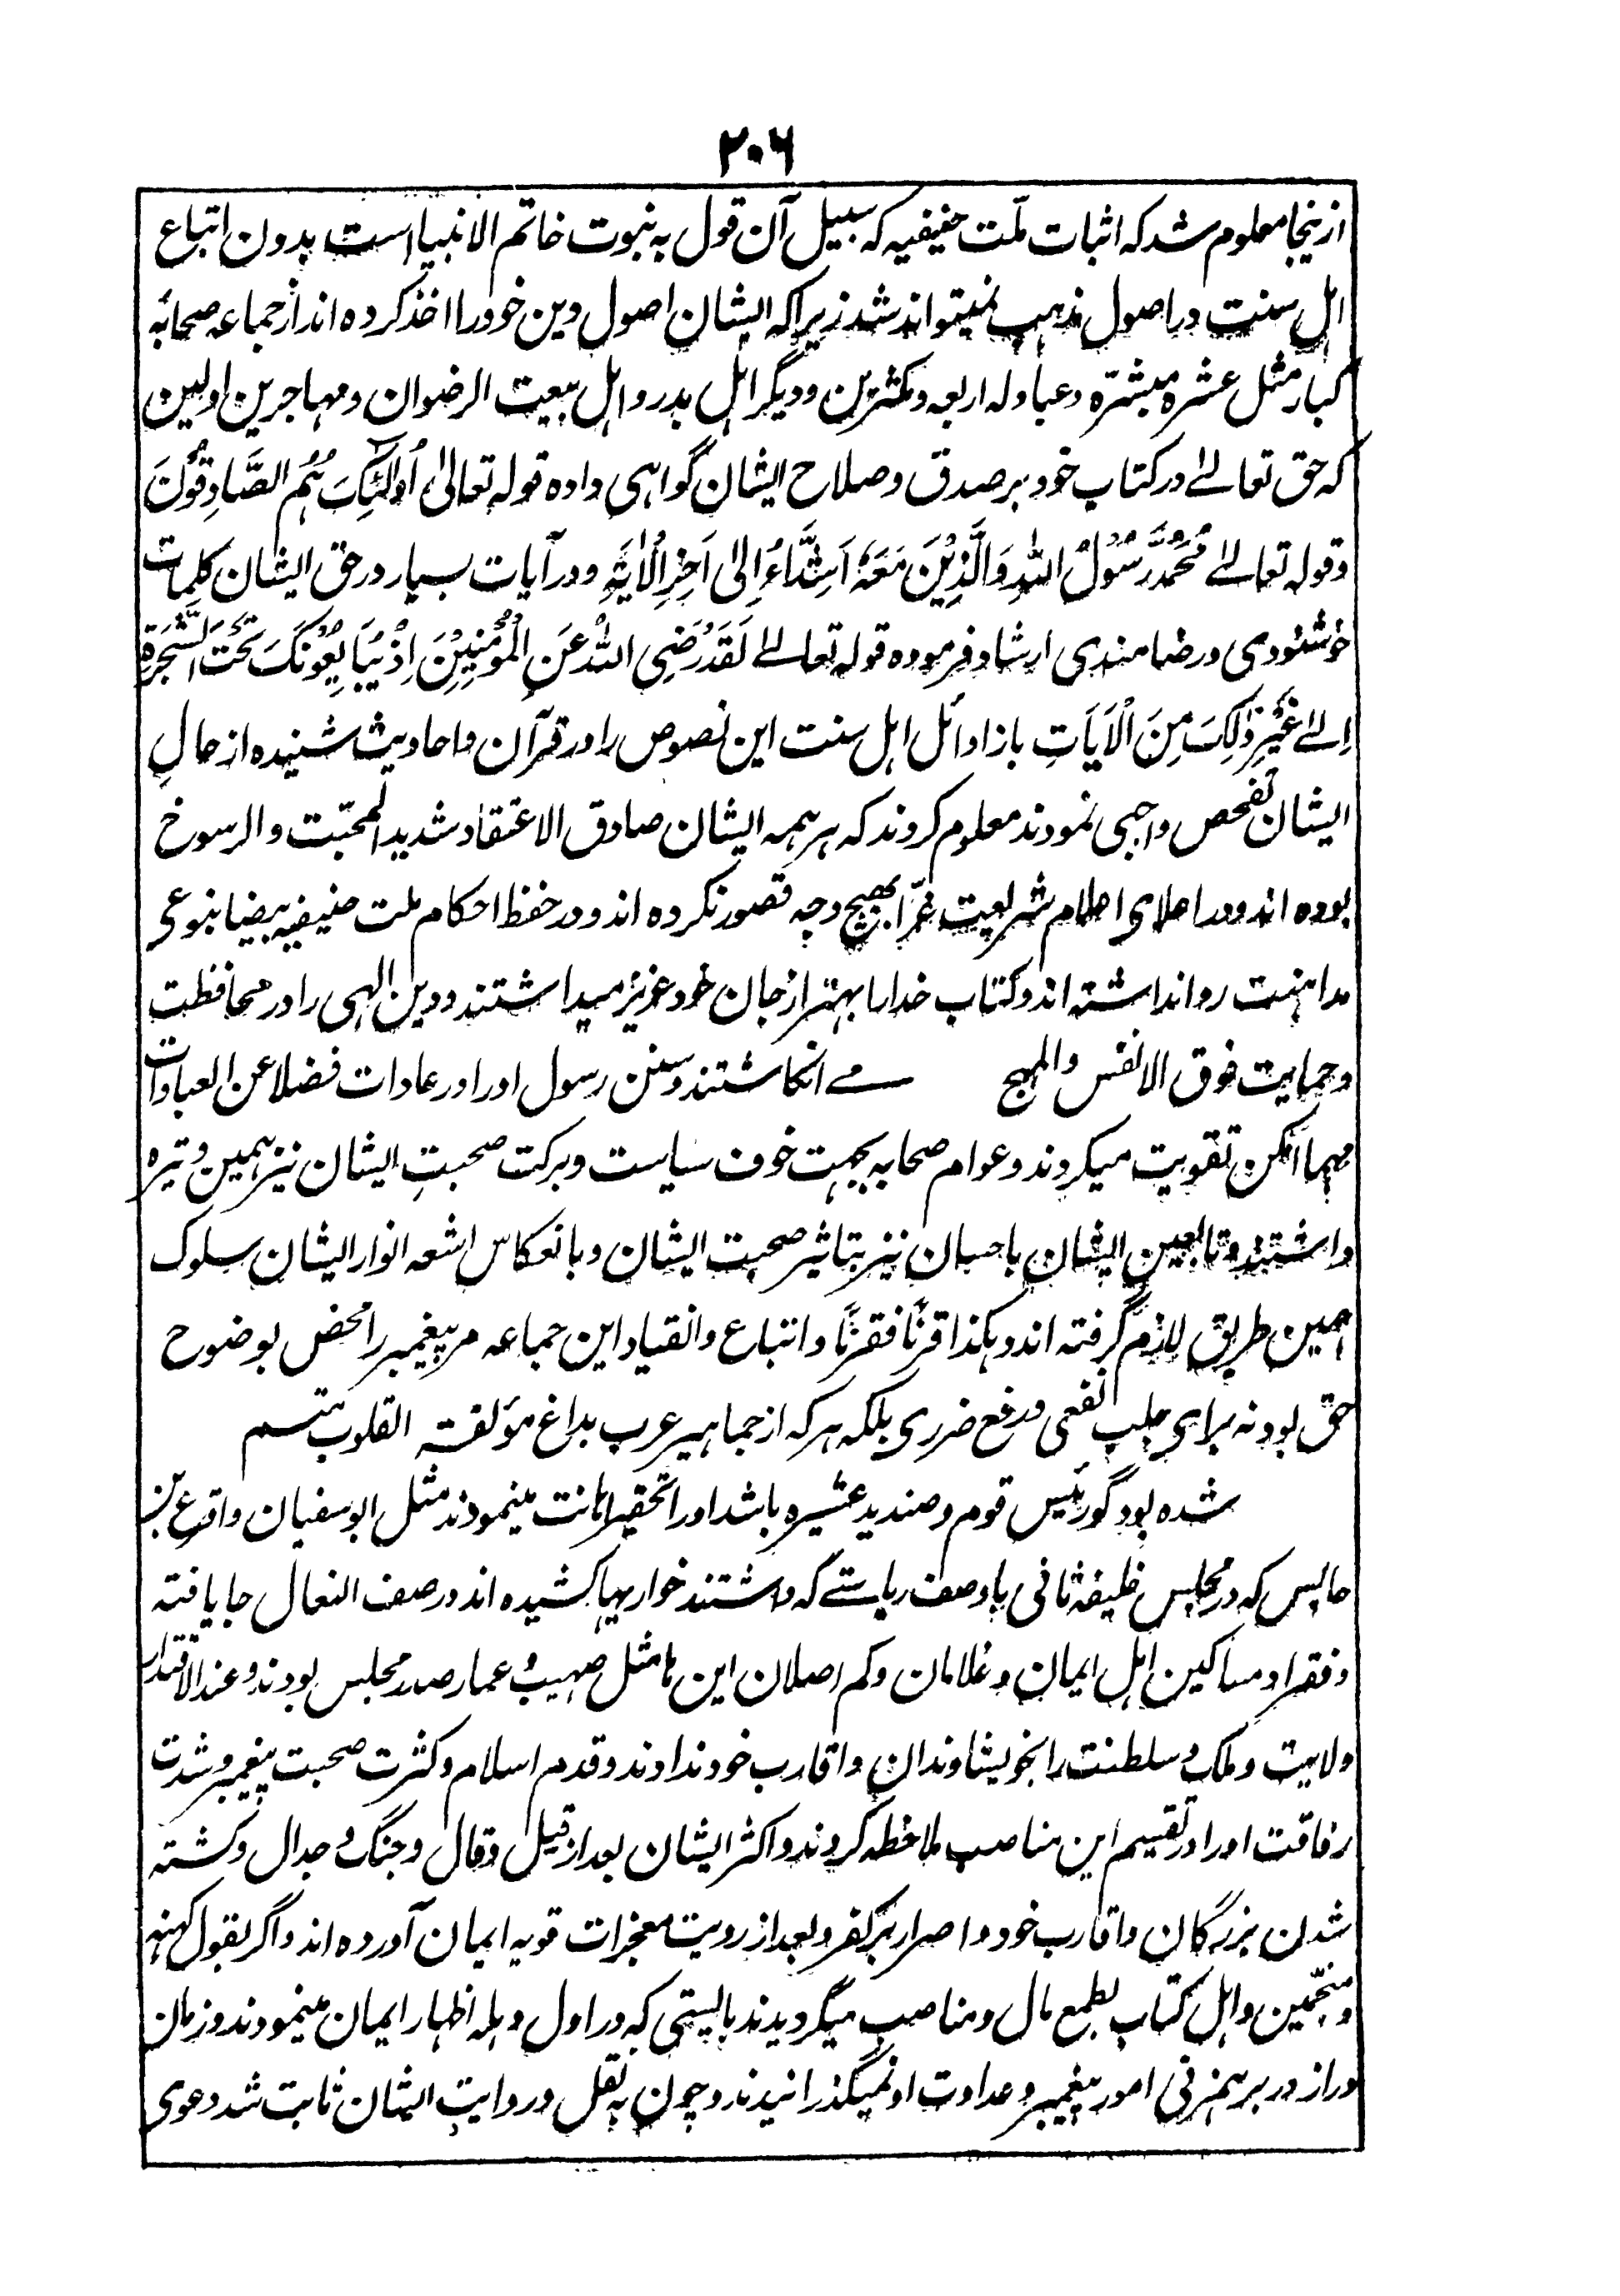 ۲۰۶
ازینجا معلوم شد که اثبات ملّت حنیفیه که سبیل آن قول به نبوت خاتم الانبیا است بدون اتباع
اهل سنت در اصول مذهب نمیتواند شد زیرا که ایشان اصول دین خود را اخذ کرده اند از جماعه صحابهٔ
کبار مثل عشره مبشّره و عبادله اربعه و مکثرین و دیگر اهل بدر و اهل بیعت الرضوان و مهاجرین اولین
که حق تعالے در کتاب خود بر صدق و صلاح ایشان گواهی داده قوله تعالیٰ اُولٰئِکَ هُمُ الصَّادِقُوْنَ
و قوله تعالےٰ مُحَمَّدٌ رَّسُوْلُ اللّٰهِ وَالَّذِیْنَ مَعَهٗ اَشِدَّاءُ اِلیٰ اٰخِرِ الْاٰیَةِ و در آیات بسیار در حق ایشان کلمات
خوشنودی و رضامندی ارشاد فرموده قوله تعالےٰ لَقَدْ رَضِیَ اللّٰهُ عَنِ الْمُؤْمِنِیْنَ اِذْ یُبَایِعُوْنَکَ تَحْتَ الشَّجَرَةِ
اِلےٰ غَیْرِ ذٰلِکَ مِنَ الْاٰیَاتِ باز اوائل اهل سنت این نصوص را در قرآن و احادیث شنیده از حالِ
ایشان تفحص واجبی نمودند معلوم کردند که هر همه ایشان صادق الاعتقاد شدید المحبّت و الرسوخ
بوده اند و در اعلای اعلام شریعت غرّا بهیچ وجه قصور نکرده اند و در حفظ احکام ملت حنیفیه بیضا بنوعی
مداهنت روا نداشته اند و کتاب خدا را بهتر از جان خود عزیز میداشتند و دین الهی را در محافظت
و حمایت فوق الانفس والمهج مے انگاشتند و سنن رسول او را در عادات فضلا عن العبادات
مهما امکن تقویت میکردند و عوام صحابه بجهت خوف سیاست و برکت صحبتِ ایشان نیز همین وتیره
داشتند و تابعین ایشان باحسان نیز بتاثیر صحبت ایشان و بانعکاس اشعه انوار ایشان سلوک
همین طریق لازم گرفته اند و هکذا قرنًا فقرنًا و اتباع و انقیاد این جماعه مر پیغمبر را محض بوضوح
حق بود نه برای جلب نفعی و دفع ضرری بلکه هر که از جماهیر عرب بداغ مؤلفة القلوب متسم
شده بود گو رئیس قوم و صندید عشیره باشد او را تحقیر و اهانت مینمودند مثل ابوسفیان و اقرع بن
حابس که در مجلس خلیفهٔ ثانی با وصف ریاستے که داشتند خواریها کشیده اند و در صف النعال جا یافته
و فقرا و مساکین اهل ایمان و غلامان و کم اصلان این ها مثل صهیب و عمار صدر مجلس بودند و عند الاقتدار
ولایت و ملک و سلطنت را بخویشاوندان و اقارب خود ندادند و قدم اسلام و کثرت صحبت پیغمبر و شدت
رفاقت او را در تقسیم این مناصب ملاحظه کردند و اکثر ایشان بعد از قیل و قال و جنگ و جدال و کشته
شدن بزرگان و اقارب خود و اصرار بر کفر و بعد از رویت معجزات قویه ایمان آورده اند و اگر بقول کهنه
و منجّمین و اهل کتاب بطمع مال و مناصب میگرویدند بایستی که در اول وهله اظهار ایمان مینمودند و زمان
دراز در برهمزنی امور پیغمبر و عداوت او نمیگذرانیدند و چون به نقل و روایتِ ایشان ثابت شد دعوی